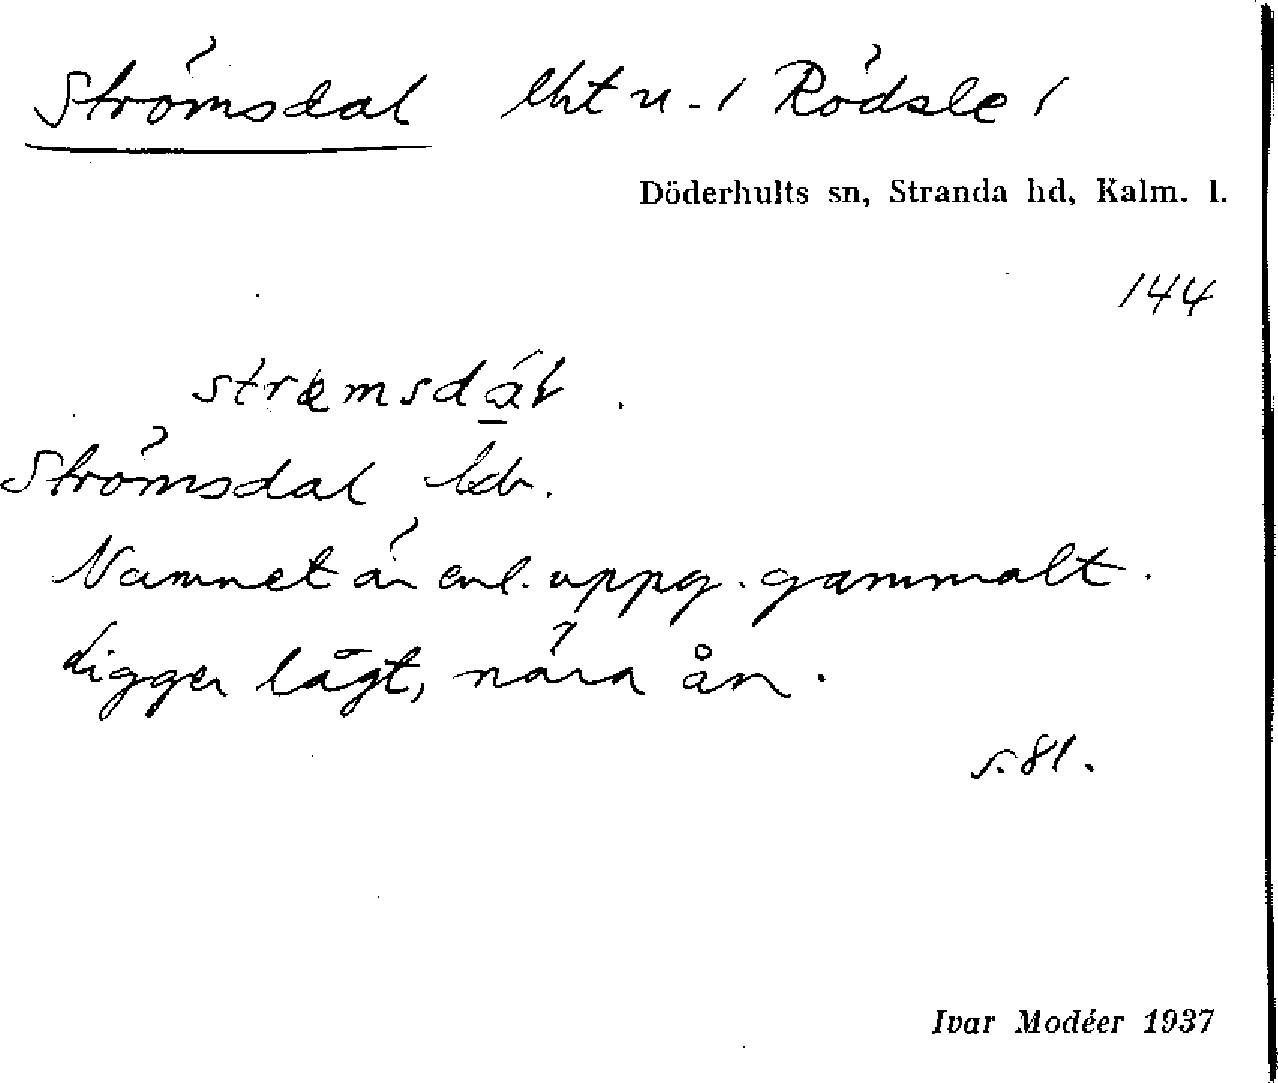 Strömsdal lht u. / Rödsle /
Döderhults sn, Stranda hd, Kalm. l.
144
Strömsdal
Namnet är enl. uppg. gammalt.
Ligger lågt, nära ån.
s. 81.
Ivar Modéer 1937